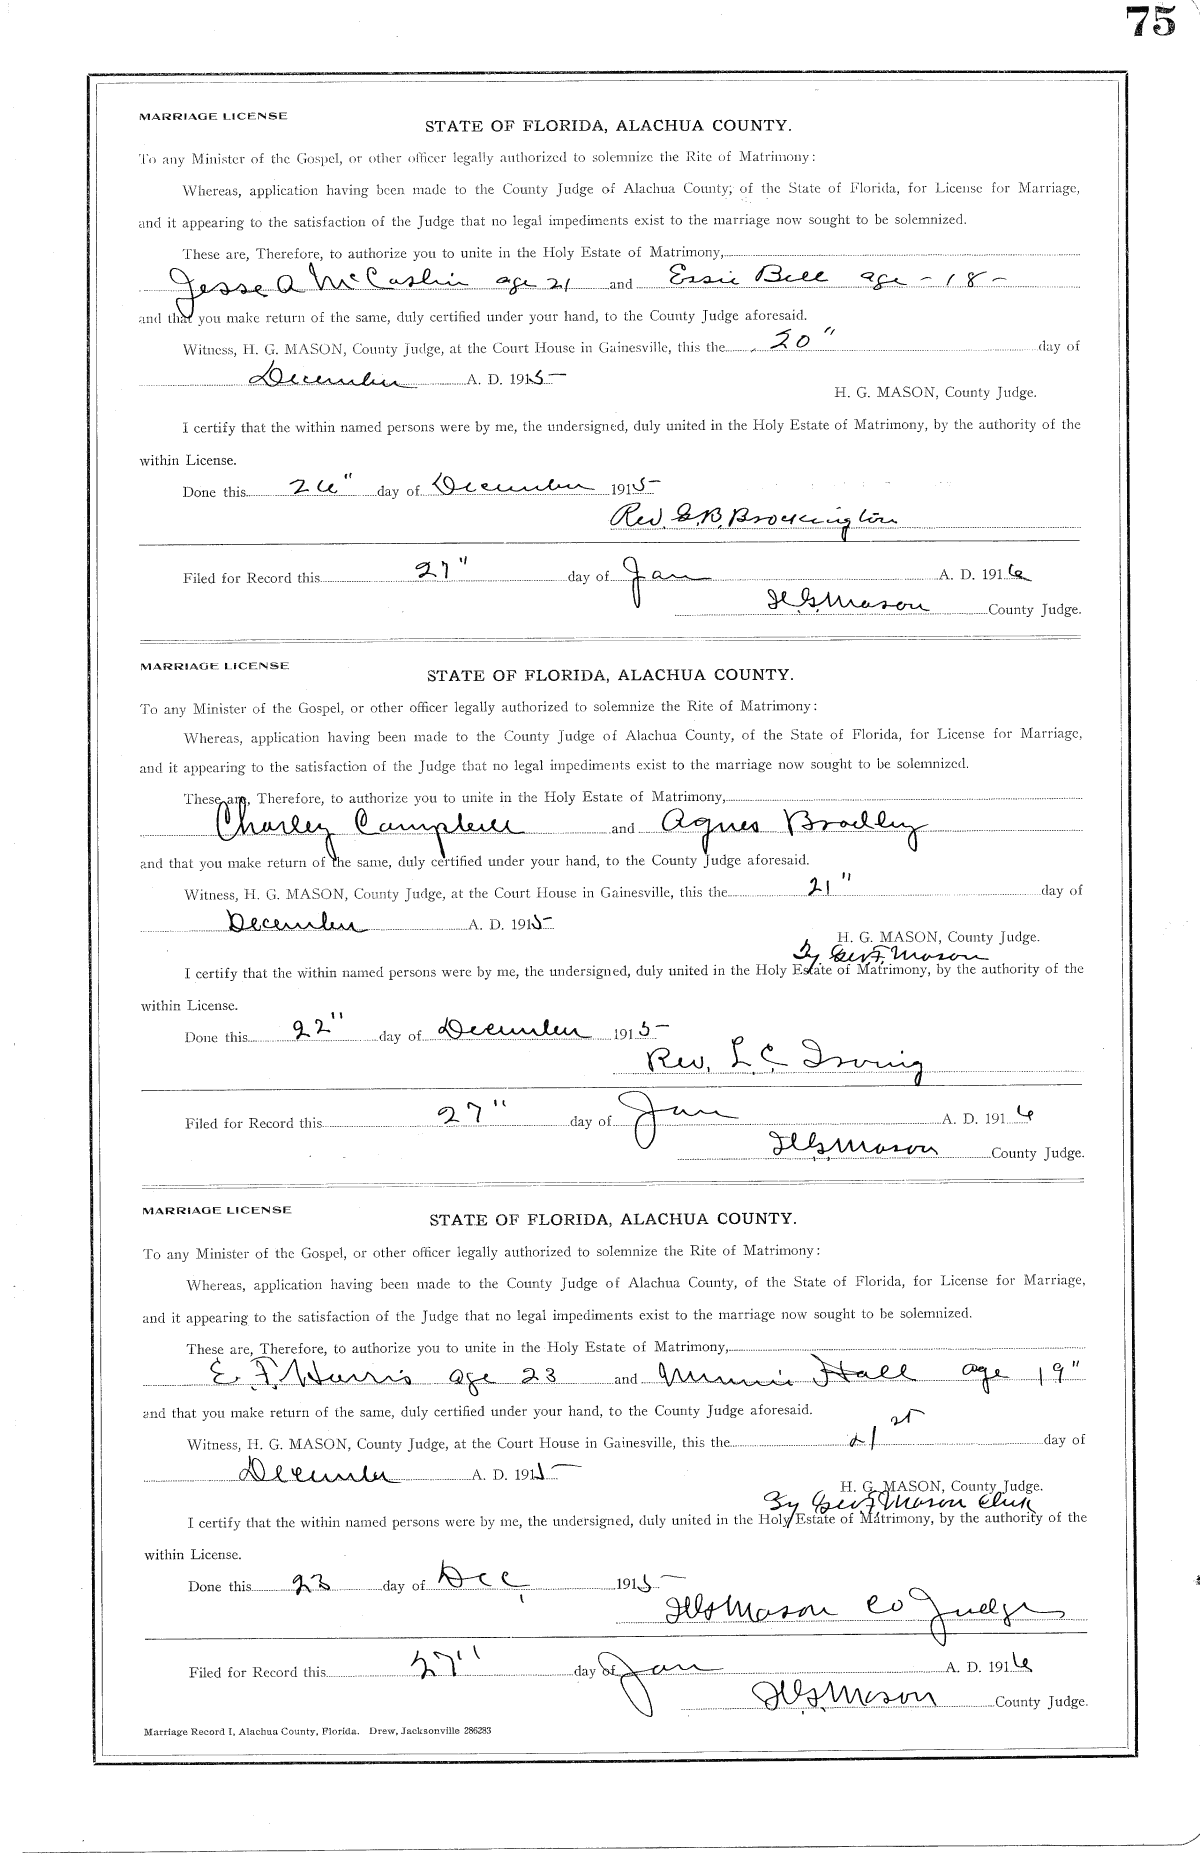 75
MARRIAGE LICENSE
STATE OF FLORIDA, ALACHUA COUNTY.
To any Minister of the Gospel, or other officer legally authorized to solemnize the Rite of Matrimony:
Whereas, application having been made to the County Judge of Alachua County, of the State of Florida, for License for Marriage,
and it appearing to the satisfaction of the Judge that no legal impediments exist to the marriage now sought to be solemnized.
These are, Therefore, to authorize you to unite in the Holy Estate of Matrimony,
Jesse A McCaslin age 21 and Essie Bell age - 18 -
and that you make return of the same, duly certified under your hand, to the County Judge aforesaid.
Witness, H. G. MASON, County Judge, at the Court House in Gainesville, this the 20" day of
December A. D. 1915
H. G. MASON, County Judge.
I certify that the within named persons were by me, the undersigned, duly united in the Holy Estate of Matrimony, by the authority of the
within License.
Done this 26" day of December 1915
Rev. G.B. Brockington
Filed for Record this 27" day of Jan A. D. 1916
H.G. Mason County Judge.
MARRIAGE LICENSE
STATE OF FLORIDA, ALACHUA COUNTY.
To any Minister of the Gospel, or other officer legally authorized to solemnize the Rite of Matrimony:
Whereas, application having been made to the County Judge of Alachua County, of the State of Florida, for License for Marriage,
and it appearing to the satisfaction of the Judge that no legal impediments exist to the marriage now sought to be solemnized.
These are, Therefore, to authorize you to unite in the Holy Estate of Matrimony,
Charley Campbell and Agnes Bradley
and that you make return of the same, duly certified under your hand, to the County Judge aforesaid.
Witness, H. G. MASON, County Judge, at the Court House in Gainesville, this the 21" day of
December A. D. 1915
H. G. MASON, County Judge.
By Geo. F. Mason
I certify that the within named persons were by me, the undersigned, duly united in the Holy Estate of Matrimony, by the authority of the
within License.
Done this 22" day of December 1915
Rev. L. C. Irving
Filed for Record this 27" day of Jan A. D. 1916
H.G. Mason County Judge.
MARRIAGE LICENSE
STATE OF FLORIDA, ALACHUA COUNTY.
To any Minister of the Gospel, or other officer legally authorized to solemnize the Rite of Matrimony:
Whereas, application having been made to the County Judge of Alachua County, of the State of Florida, for License for Marriage,
and it appearing to the satisfaction of the Judge that no legal impediments exist to the marriage now sought to be solemnized.
These are, Therefore, to authorize you to unite in the Holy Estate of Matrimony,
E. F. Harris age 23 and Minnie Hall age 19"
and that you make return of the same, duly certified under your hand, to the County Judge aforesaid.
Witness, H. G. MASON, County Judge, at the Court House in Gainesville, this the 21st day of
December A. D. 1915
H. G. MASON, County Judge.
By Geo F Mason Clerk
I certify that the within named persons were by me, the undersigned, duly united in the Holy Estate of Matrimony, by the authority of the
within License.
Done this 23 day of Dec, 1915
H G Mason Co Judge
Filed for Record this 27" day of Jan A. D. 1916
H.G. Mason County Judge.
Marriage Record I, Alachua County, Florida. Drew, Jacksonville 286283